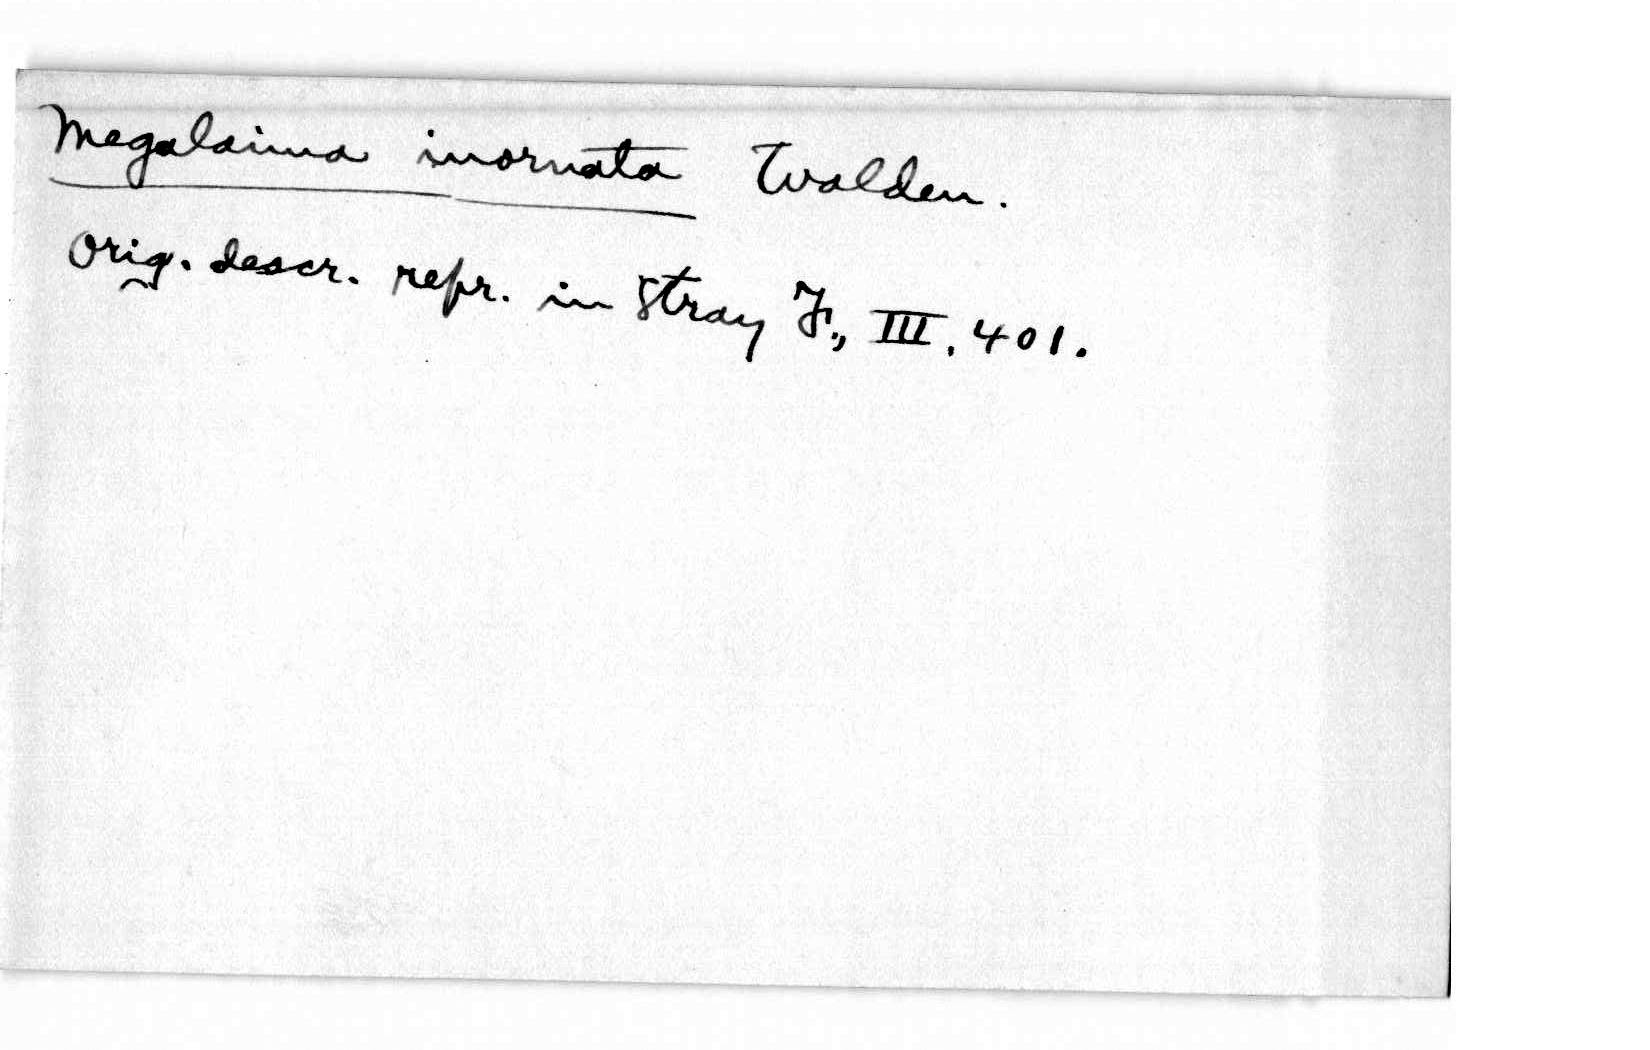 Megalaima inornata Walden.
Orig. descr. repr. in Stray F., III, 401.